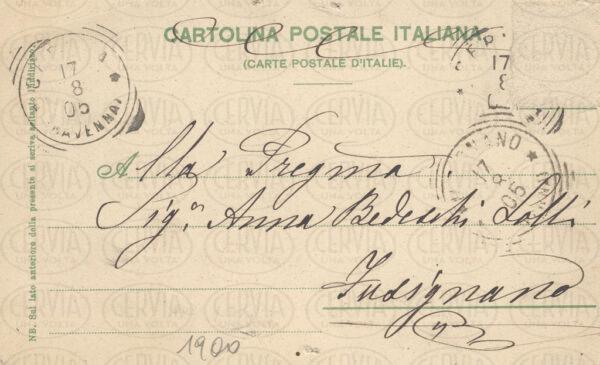 CARTOLINA POSTALE ITALIANA
(CARTE POSTALE D'ITALIE).
17
8
05
(RAVENNA)
17
8
17
05
Alla Pregma.
Sigra Anna Bedeschi Lolli
Fusignano
1900
NB. Sul lato anteriore della presente si scrive soltanto l'indirizzo.
CERVIA
UNA VOLTA